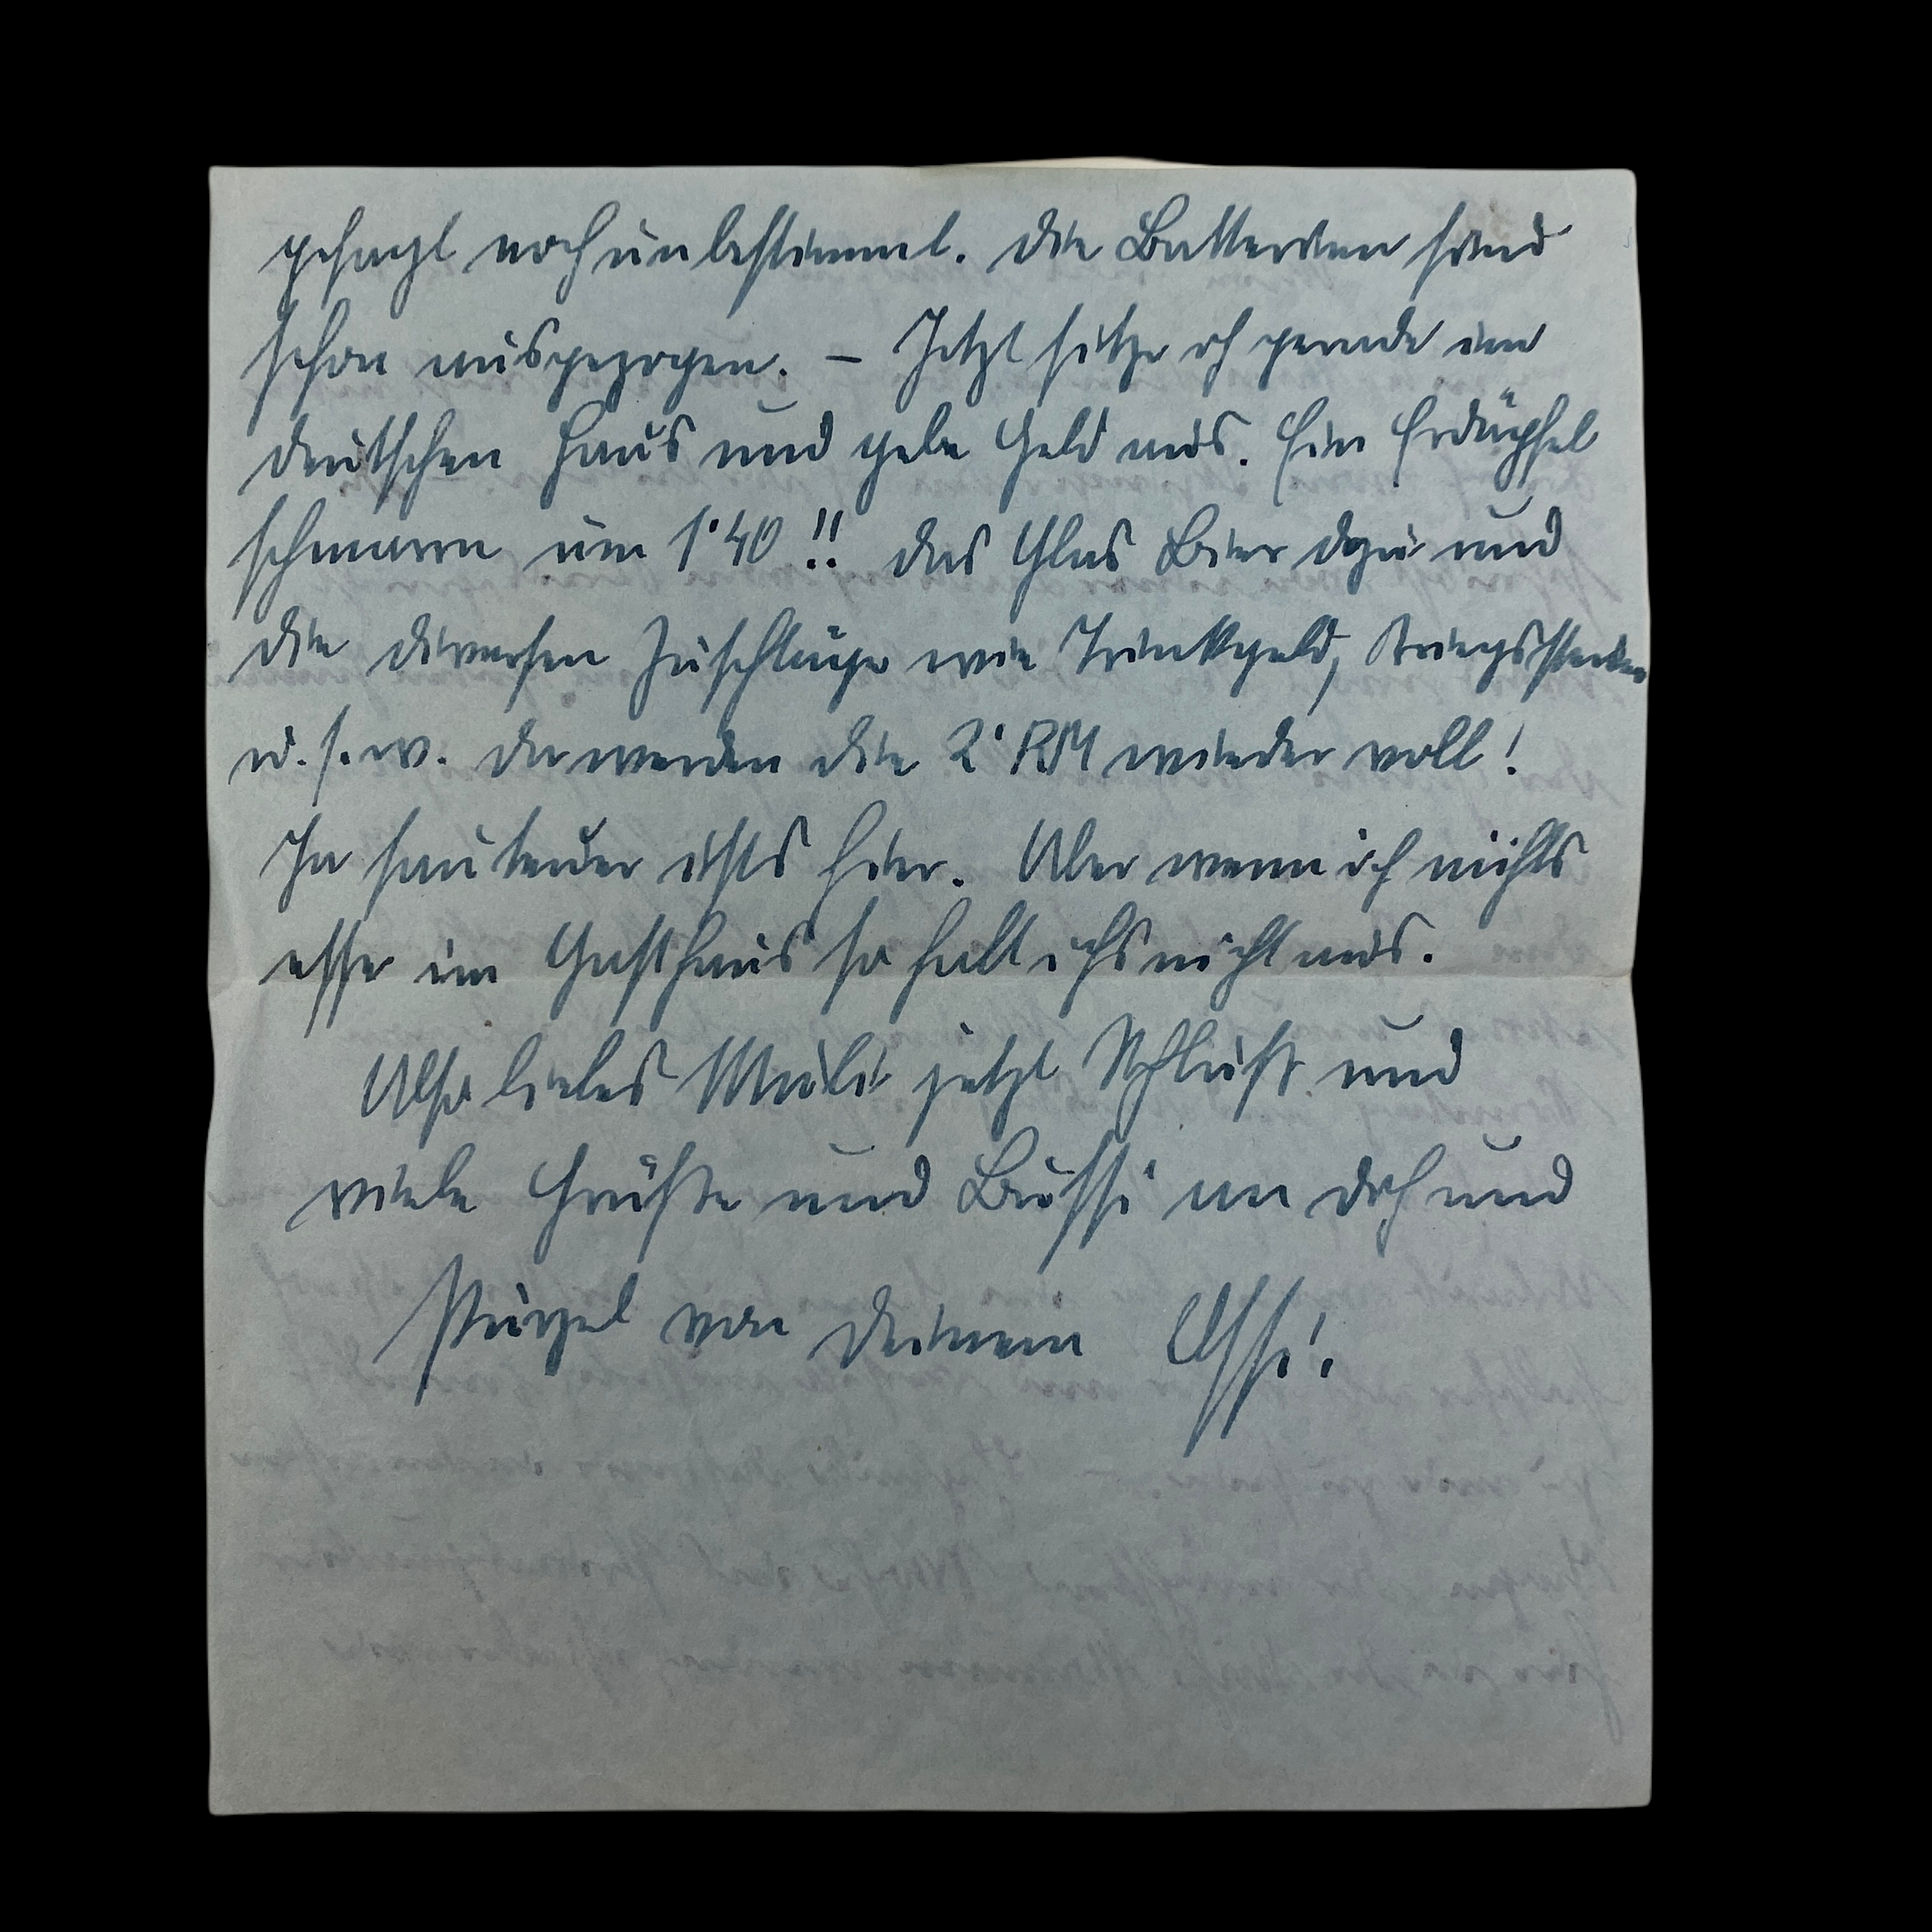 gesagt noch unbestimmt. Die Batterien sind
schon ausgezogen. – Jetzt sitze ich gerade im
deutschen Haus und gebe Geld aus. Ein Erdäpfel
schmarrn um 1˙40!! Das Glas Bier dazu und
die diversen Zuschläge wie Trinkgeld, Kriegssteuer
u. s. w. da werden die 2˙RM wieder voll!
Ja sauteuer ists hier. Aber wenn ich nichts
esse im Gasthaus so halt ichs nicht aus.
Also liebes jetzt Schluß und
viele Grüße und Bussi an dich und
Purzel von Deinem